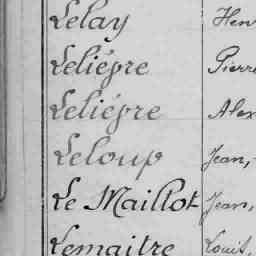 Lelay Henr
Lelièvre Pierre
Lelièvre Alex
Leloup Jean,
Le Maillot Jean,
Lemaitre Louis,